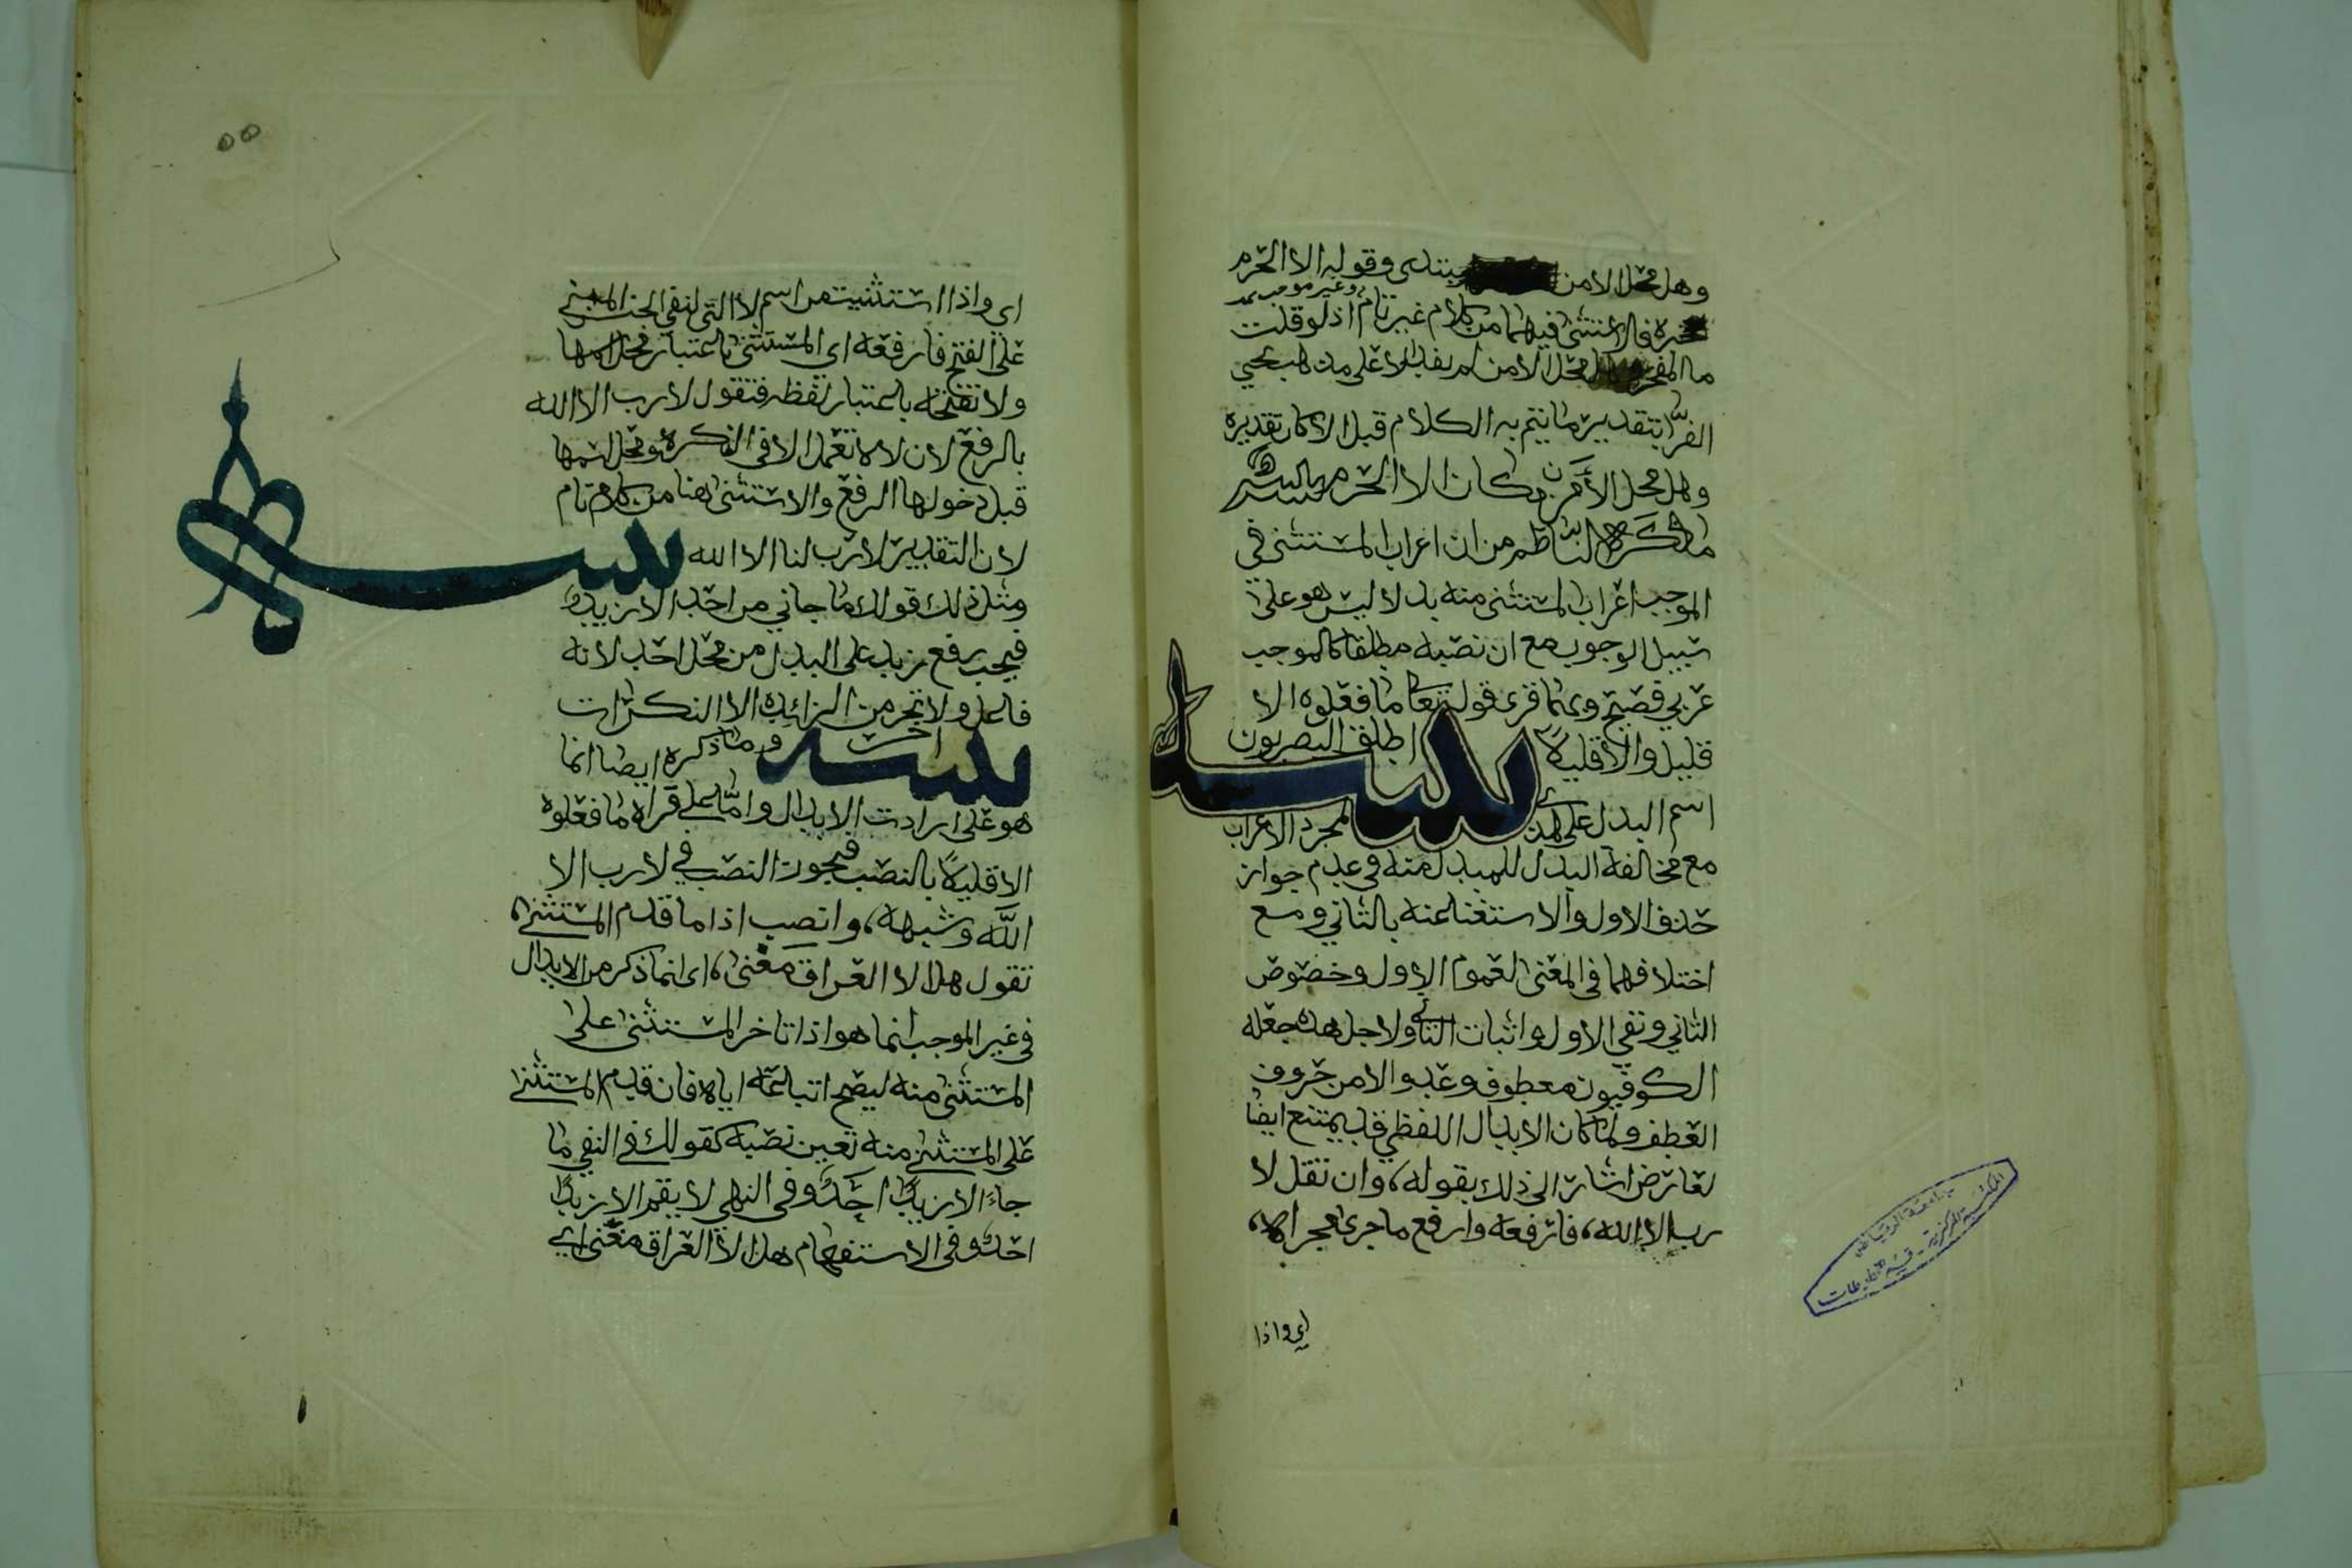 وهل محل الامن مبتدى وقوله الا الحرم
خبره فالاستثنى فيهما من كلام غير تام وغير موجب اذ لو قلت
ما المفخر وهل محل الامن لم يفد الا على مذهب يحيى
الفرّا بتقدير ما يتم به الكلام قبل الا كان تقديره
وهل محل الأمن مكان الا الحرم
ما ذكره الناظم من ان اعراب المستثنى في
الموجب اعراب المستثنى منه بدلا ليس هو على
سبيل الوجوب مع ان نصبه مطلقا كالموجب
عربي فصيح وبهما قرى قوله تعا ما فعلوه الا
قليل والا قليلاً
تنبيه
اطلق البصريون
اسم البدل على هذا لمجرد الاعراب
مع مخالفة البدل للمبدل منه في عدم جواز
حذف الاول والاستغنا عنه بالثاني ومع
اختلافهما في المعنى لعموم الاول وخصوص
الثاني ونفي الاول واثبات الثاني ولاجل هذه جعله
الكوفيون معطوف وعدو الا من حروف
العطف ولما كان الابدال اللفظي قد يمتنع ايضا
لعارض اشار الى ذلك بقوله، وان تقل لا
رب الا الله، فارفعه وارفع ما جرى مجراه،
اي واذا
جامعة الرياض
المكتبة المركزية - قسم المخطوطات
٥٥
اي واذا استثنيت من اسم لا التي لنفي الجنس المبني
على الفتح فارفعه اي المستثنى باعتبار محل اسمها
ولا تفتحه باعتبار لفظه فتقول لا رب الا الله
بالرفع لان لا لا تعمل الا في النكره ومحل اسمها
قبل دخولها الرفع والاستثنى هنا من كلام تام
لان التقدير لا رب لنا الا الله
تنبيه
ومثل ذلك قولك ما جاني من احد الا زيد
فيجب رفع زيد على البدل من محل احد لانه
فاعل ولا تجر من الزائده الا النكرات
تنبيه
اخر
وما ذكره ايضا انما
هو على ارادت الابدال واما على قراه ما فعلوه
الا قليلاً بالنصب فيجوز النصب في لا رب الا
اللَّه وشبهه، وانصب اذا ما قدم المستثنى،
تقول هل الا العراق مغنى، اي انما ذكر من الابدال
في غير الموجب انما هو اذا تاخر المستثنى على
المستثنى منه ليصح اتباعه اياه فان قدم المستثنى
على المستثنى منه تعين نصبه كقولك في النفي ما
جاءَ الا زيدًا احَدٌ وفي النهي لا يقم الا زيدًا
احدٌ وفي الاستفهام هل الا العراق مغنى اي